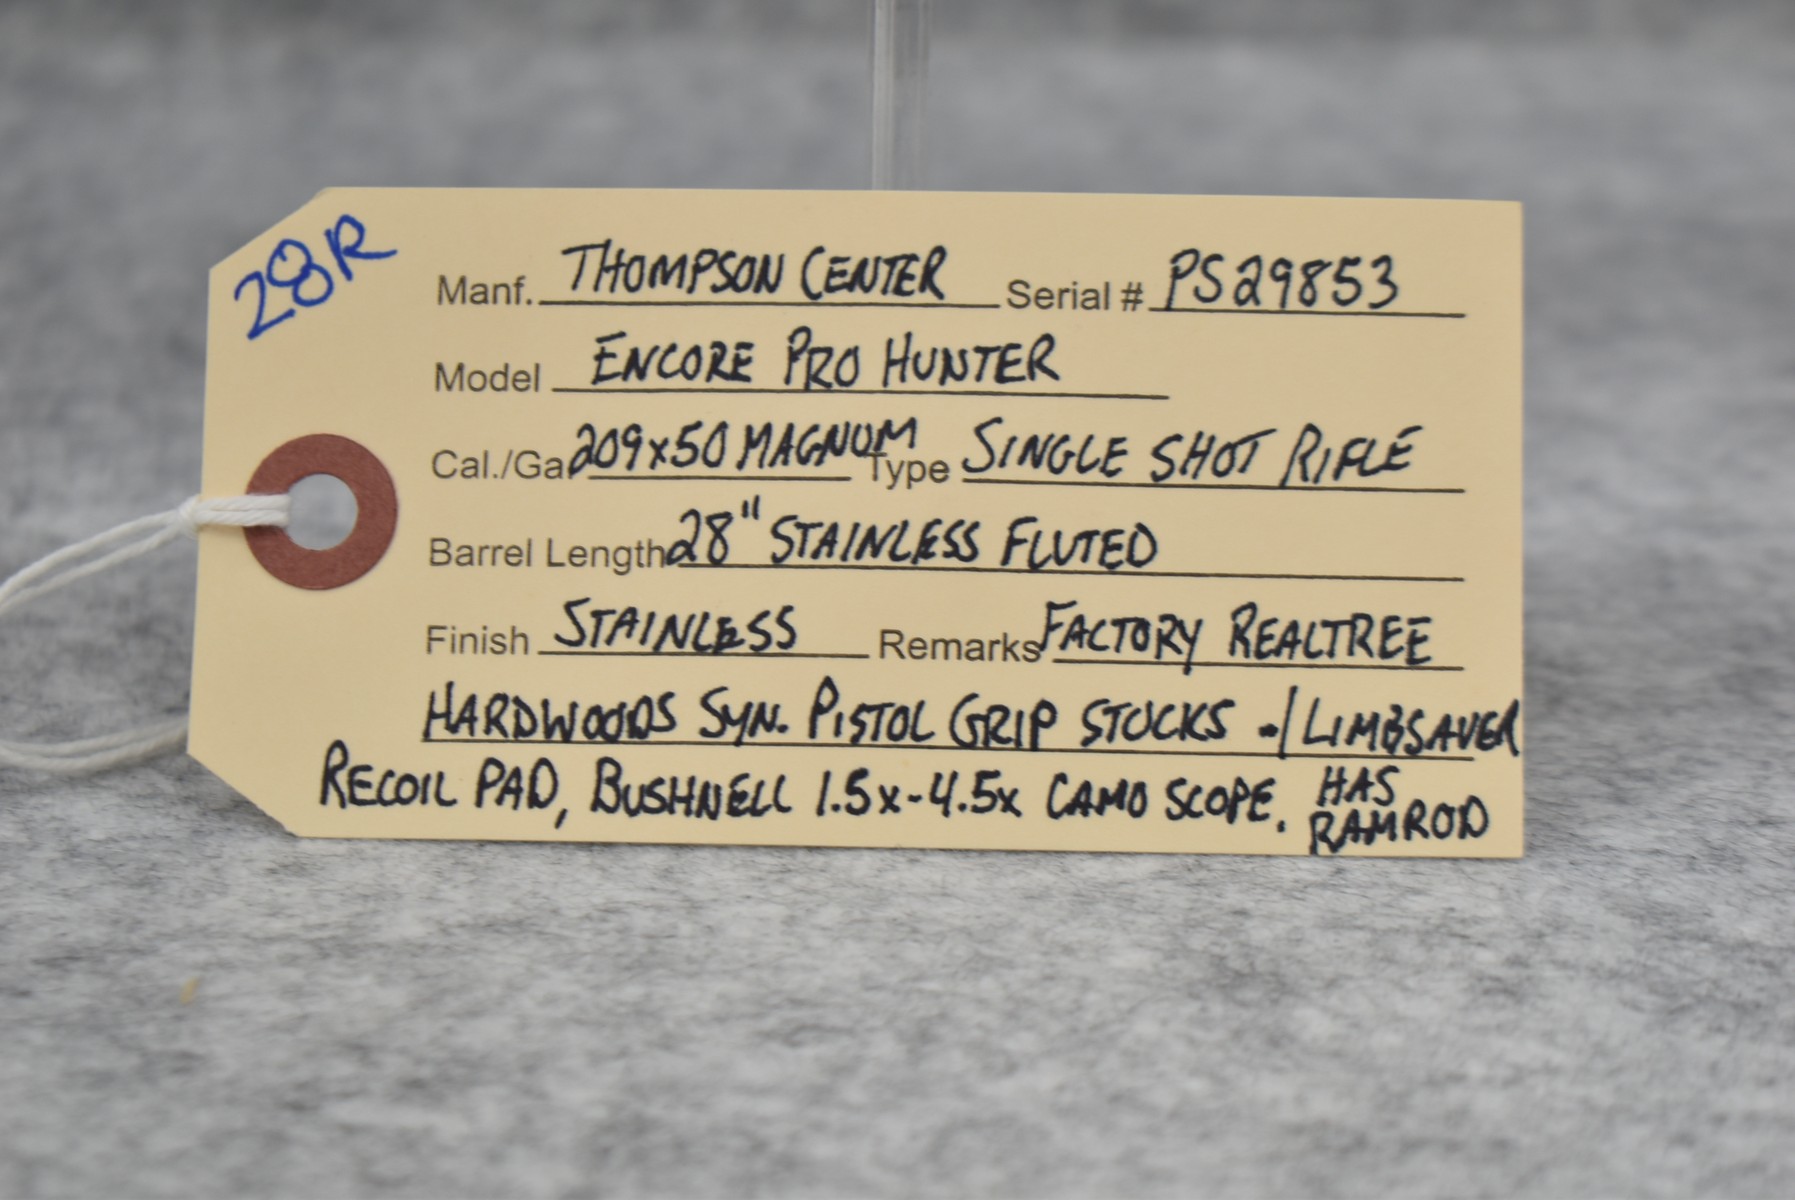 28R
Manf. THOMPSON CENTER Serial # PS29853
Model ENCORE PRO HUNTER
Cal./Ga. 209x50 MAGNUM Type SINGLE SHOT RIFLE
Barrel Length 28" STAINLESS FLUTED
Finish STAINLESS Remarks FACTORY REALTREE
HARDWOODS SYN. PISTOL GRIP STOCKS w/ LIMBSAVER
RECOIL PAD, BUSHNELL 1.5x-4.5x CAMO SCOPE. HAS
RAMROD